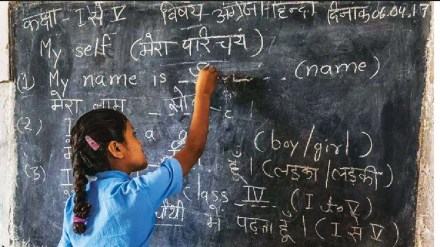 कक्षा - I से V विषय - अंग्रेजी/हिन्दी दिनांक 06.04.17
My self (मेरा परिचय)
(1) My name is (name)
मेरा नाम
(2) a (boy/girl)
हूँ। (लड़का/लड़की)
(3) class IV (I to V)
चौथी में पढ़ता हूँ। (I से V)